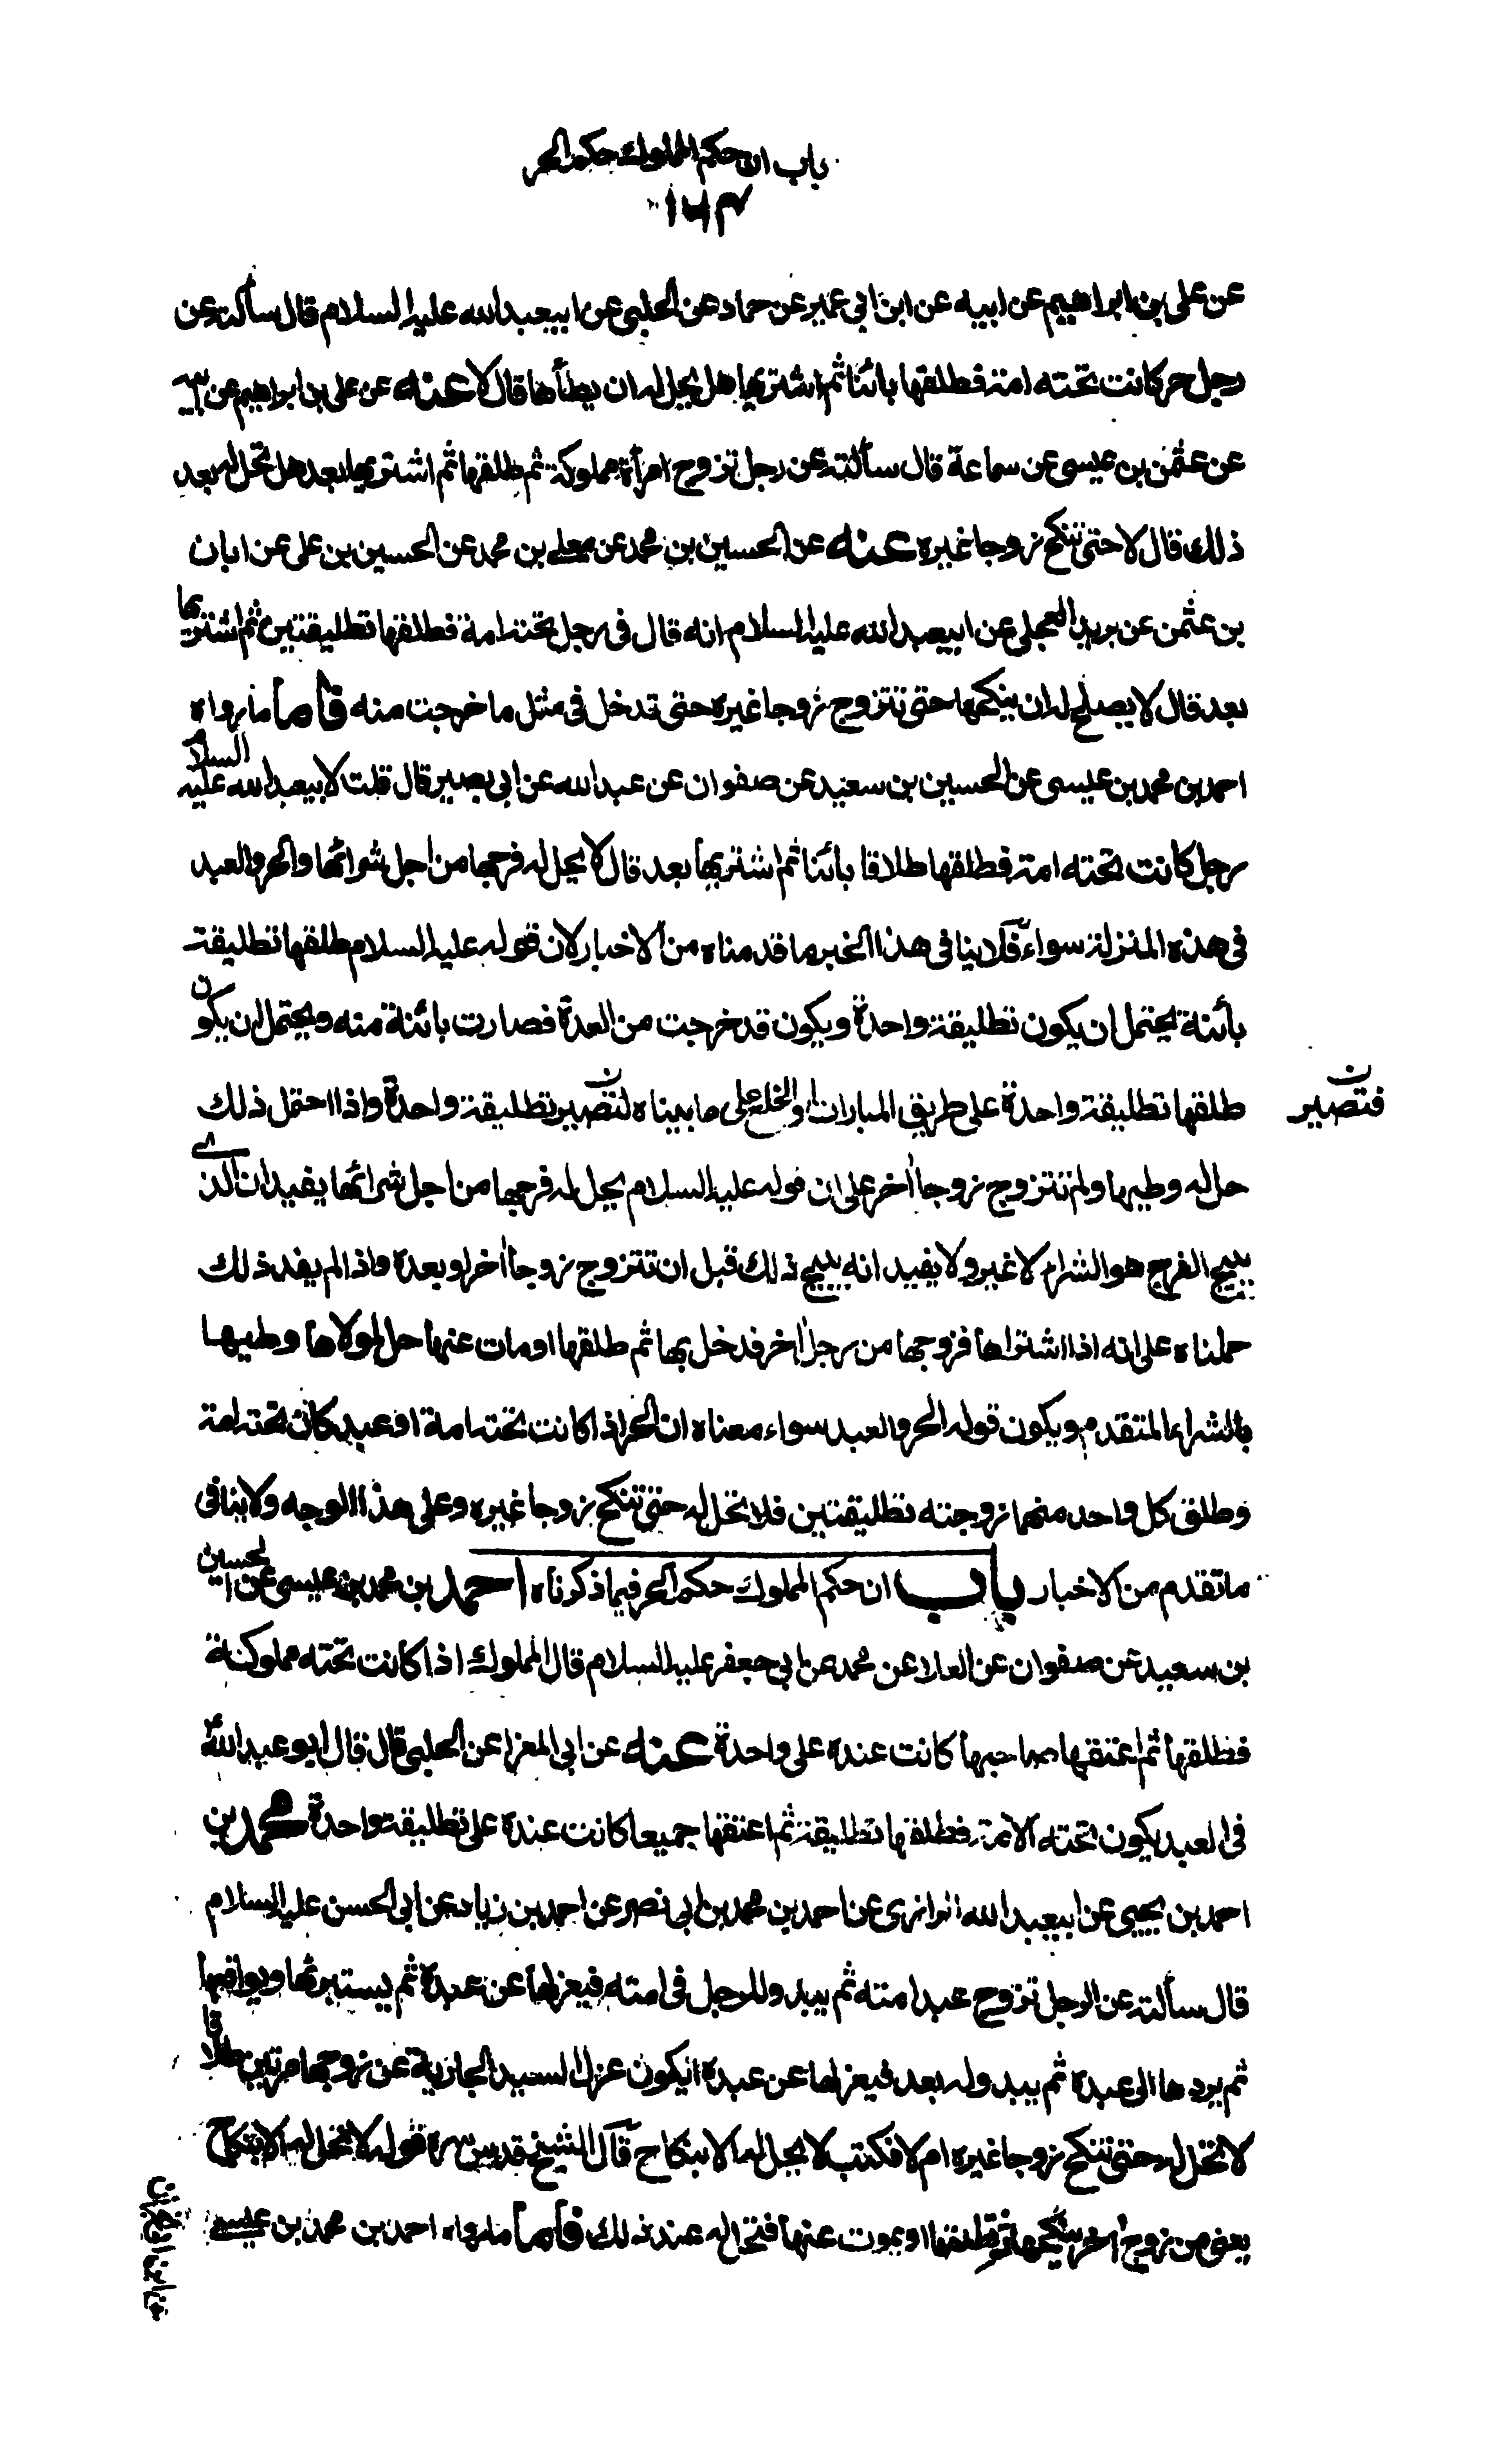 باب ان حكم المملوك حكم الحر
١٦٣
عن على بن ابراهيم عن ابيه عن ابن ابى عمير عن حماد عن الحلبى عن ابيعبدالله عليه السلام قال سألته عن
رجل حر كانت تحته امة فطلقها بائنا ثم اشتريها هل يحل له ان يطأها قال لا عنه عن على بن ابراهيم عن ابيه
عن عثمن بن عيسى عن سماعة قال سألته عن رجل تزوج امرأة مملوكة ثم طلقها ثم اشتريها بعد هل تحل له بعد
ذلك قال لا حتى تنكح زوجا غيره عنه عن الحسين بن محمد عن معلى بن محمد عن الحسين بن على عن ابان
بن عثمن عن بريد العجلى عن ابيعبدالله عليه السلام انه قال فى رجل تحته امة فطلقها تطليقتين ثم اشتريها
بعد قال لا يصلح له ان ينكحها حتى تتزوج زوجا غيره حتى تدخل فى مثل ما خرجت منه فأما ما رواه
احمد بن محمد بن عيسى عن الحسين بن سعيد عن صفوان عن عبدالله عن ابى بصير قال قلت لابيعبدالله عليه السلام
رجل كانت تحته امة فطلقها طلاقا بائنا ثم اشتريها بعد قال لا يحل له فرجها من اجل شرائها والحر والعبد
فى هذه المنزلة سواء فلا ينافى هذا الخبر ما قدمناه من الاخبار لان قوله عليه السلام طلقها تطليقة
بائنة يحتمل ان يكون تطليقة واحدة ويكون قد خرجت من العدة فصارت بائنة منه ويحتمل ان يكون
طلقها تطليقة واحدة على طريق المبارات او الخلع على ما بيناه لتصير تطليقة واحدة واذا احتمل ذلك
فتصير ن
حل له وطيها ولم تتزوج زوجا اخر على ان قوله عليه السلام يحل له فرجها من اجل شرائها يفيد ان الذى
يبيح الفرج هو الشراء لا غير ولا يفيد انه يبيح ذلك قبل ان تتزوج زوجا اخر او بعده واذا لم يفد ذلك
حملناه على انه اذا اشتراها فزوجها من رجل اخر فدخل بها ثم طلقها او مات عنها حل لمولاها وطيها
بالشراء المتقدم ويكون قوله الحر والعبد سواء معناه ان الحر اذا كانت تحته امة او عبد كان تحته امة
وطلق كل واحد منهما زوجته تطليقتين فلا تحل له حتى تنكح زوجا غيره وعلى هذا الوجه ولا ينافى
ما تقدم من الاخبار باب ان حكم المملوك حكم الحر فيما ذكرناه احمد بن محمد بن عيسى عن الحسين
بن سعيد عن صفوان عن العلا عن محمد عن ابى جعفر عليه السلام قال المملوك اذا كانت تحته مملوكة
فطلقها ثم اعتقها صاحبها كانت عنده على واحدة عنه عن ابى المغزا عن الحلبى قال قال ابو عبدالله ع
فى العبد يكون تحته الامة فطلقها تطليقة ثم اعتقها جميعا كانت عنده على تطليقة واحدة محمد بن
احمد بن يحيى عن ابيعبدالله الرازى عن احمد بن محمد بن ابى نصر عن احمد بن زياد عن ابى الحسن عليه السلام
قال سألته عن الرجل تزوج عبد امته ثم يبدو للرجل فى امته فيعزلها عن عبده ثم يستبرئها ويواقعها
ثم يردها الى عبده ثم يبدو له بعد فيعزلها عن عبده ايكون عزل السيد الجارية عن زوجها مرتين طلاقا
لا تحل له حتى تنكح زوجا غيره ام لا فكتب لا يحل له الا بنكاح قال الشيخ قدس سره قوله لا تحل له الا بنكاح
يعنى من زوج اخر ينكحها ثم يطلقها او يموت عنها فتحل له عند ذلك فأما ما رواه احمد بن محمد بن عيسى